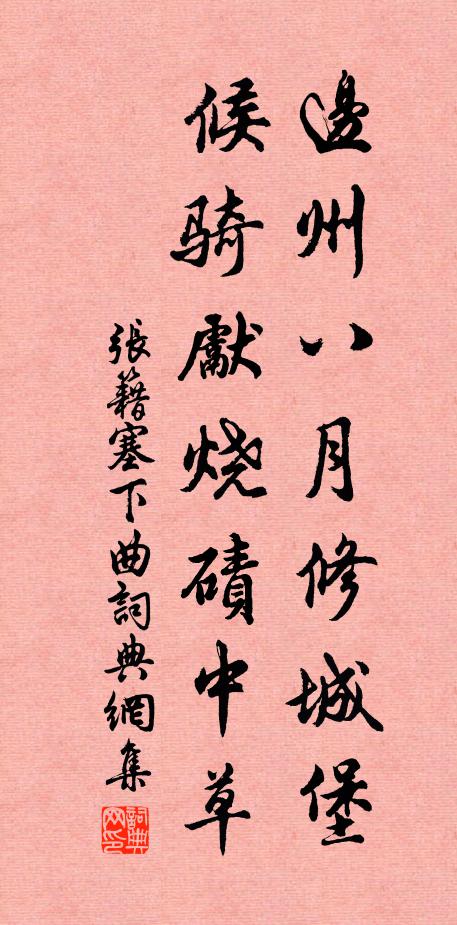 邊州八月修城堡
候騎獻烧磧中草
張籍塞下曲詞典網集
詞典
网印